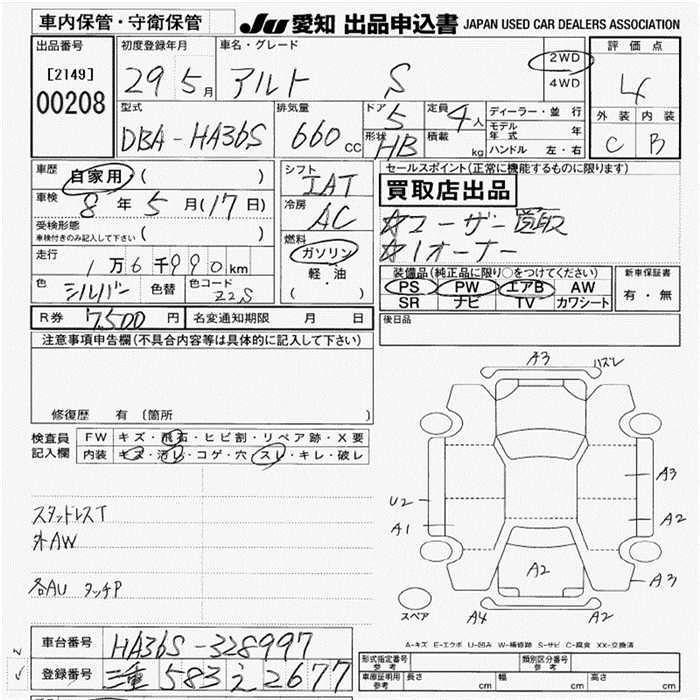 車内保管・守衛保管
JU 愛知 出品申込書 JAPAN USED CAR DEALERS ASSOCIATION
出品番号
[2149]
00208
初度登録年月
29 5月
車名・グレード
アルト S
2WD
4WD
評価点
4
外装 内装
C B
型式
DBA-HA36S
排気量
660 CC
ドア 5
形状 HB
定員 4人
積載 kg
ディーラー・並行
モデル年式 年
ハンドル 左・右
車歴 自家用・( )
車検 8年5月(17日)
受検形態
車検付きのみ記入して下さい ( )
走行 1万6千990km
色 シルバー 色替 色コード Z2S
R券 7,500円 名変通知期限 月 日
シフト IAT
冷房 AC
燃料
ガソリン
軽・油
( )
セールスポイント(正常に機能するものに限ります)
買取店出品
☆ユーザー買取
☆1オーナー
装備品(純正品に限り○をつけてください)
PS PW エアB AW
SR ナビ TV カワシート
新車保証書
有・無
後日品
注意事項申告欄(不具合内容等は具体的に記入して下さい)
修復歴 有 〔箇所 〕
検査員記入欄
FW キズ・飛石・ヒビ割・リペア跡・X要
内装 キズ・汚レ・コゲ・穴・スレ・キレ・破レ
スタッドレスT
外AW
各AU タッチP
A3 ハズレ
A3
U2
A2
A1
A2
A3
スペア
A4 A2
A-キズ E-エクボ U-凹み W-補修跡 S-サビ C-腐食 XX-交換済
車台番号 HA36S-328997
登録番号 三重 583 え 2677
形式指定番号 参考
類別区分番号 参考
車庫証明用 参考 長さ cm 幅 cm 高さ cm